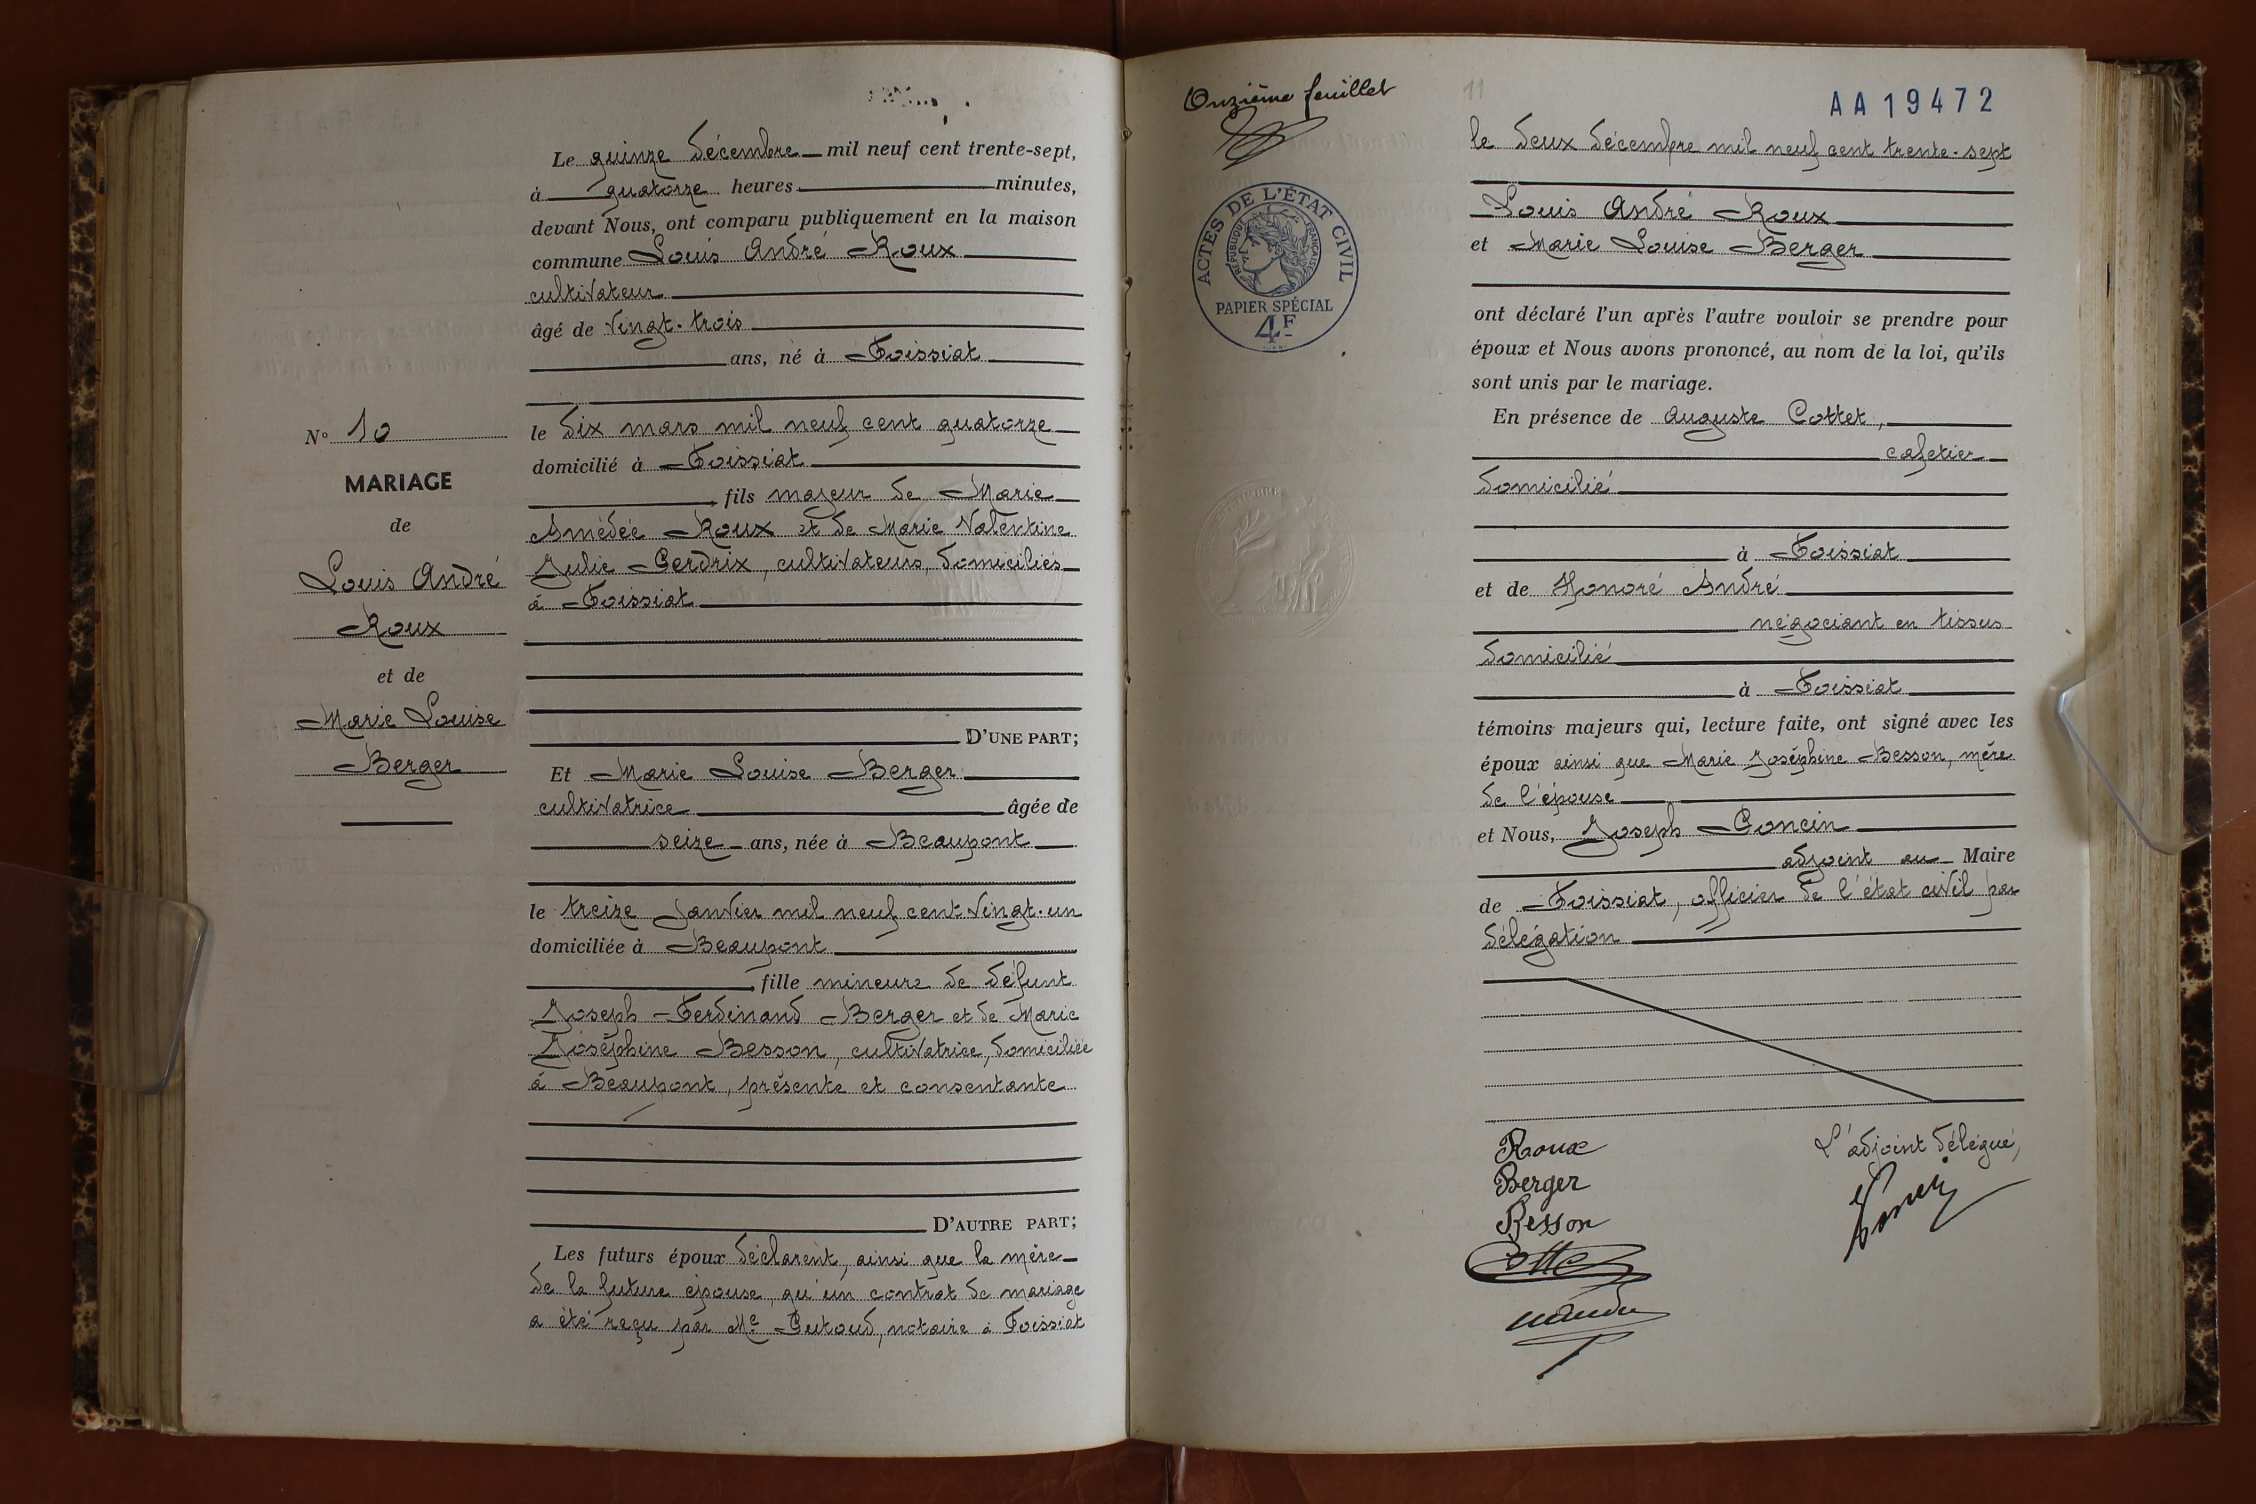 Le quinze décembre mil neuf cent trente-sept,
à quatorze heures minutes,
devant Nous, ont comparu publiquement en la maison
commune Louis André Roux
cultivateur
âgé de vingt-trois
ans, né à Foissiat
le dix mars mil neuf cent quatorze
domicilié à Foissiat
fils majeur de Marie
Amédée Roux et de Marie Valentine
Julie Perdrix, cultivateurs, domiciliés
à Foissiat
D'UNE PART;
N° 10
MARIAGE
de
Louis André
Roux
et de
Marie Louise
Berger
Et Marie Louise Berger
cultivatrice âgée de
seize ans, née à Beaupont
le treize janvier mil neuf cent vingt-un
domiciliée à Beaupont
fille mineure de défunt
Joseph Ferdinand Berger et de Marie
Joséphine Besson, cultivatrice, domiciliée
à Beaupont, présente et consentante
D'AUTRE PART;
Les futurs époux déclarent, ainsi que la mère
de la future épouse, qu'un contrat de mariage
a été reçu par Me Putoud, notaire à Foissiat
Onzième feuillet
11
AA19472
ACTES DE L'ÉTAT CIVIL
RÉPUBLIQUE FRANÇAISE
PAPIER SPÉCIAL
4F
le deux décembre mil neuf cent trente-sept
Louis André Roux
et Marie Louise Berger
ont déclaré l'un après l'autre vouloir se prendre pour
époux et Nous avons prononcé, au nom de la loi, qu'ils
sont unis par le mariage.
En présence de Auguste Cottet,
cafetier
domicilié
à Foissiat
et de Honoré André
négociant en tissus
domicilié
à Foissiat
témoins majeurs qui, lecture faite, ont signé avec les
époux ainsi que Marie Joséphine Besson, mère
de l'épouse
et Nous, Joseph Poncin
adjoint au Maire
de Foissiat, officier de l'état civil par
délégation
Roux
Berger
Besson
Cottet
L'adjoint délégué,
Poncin